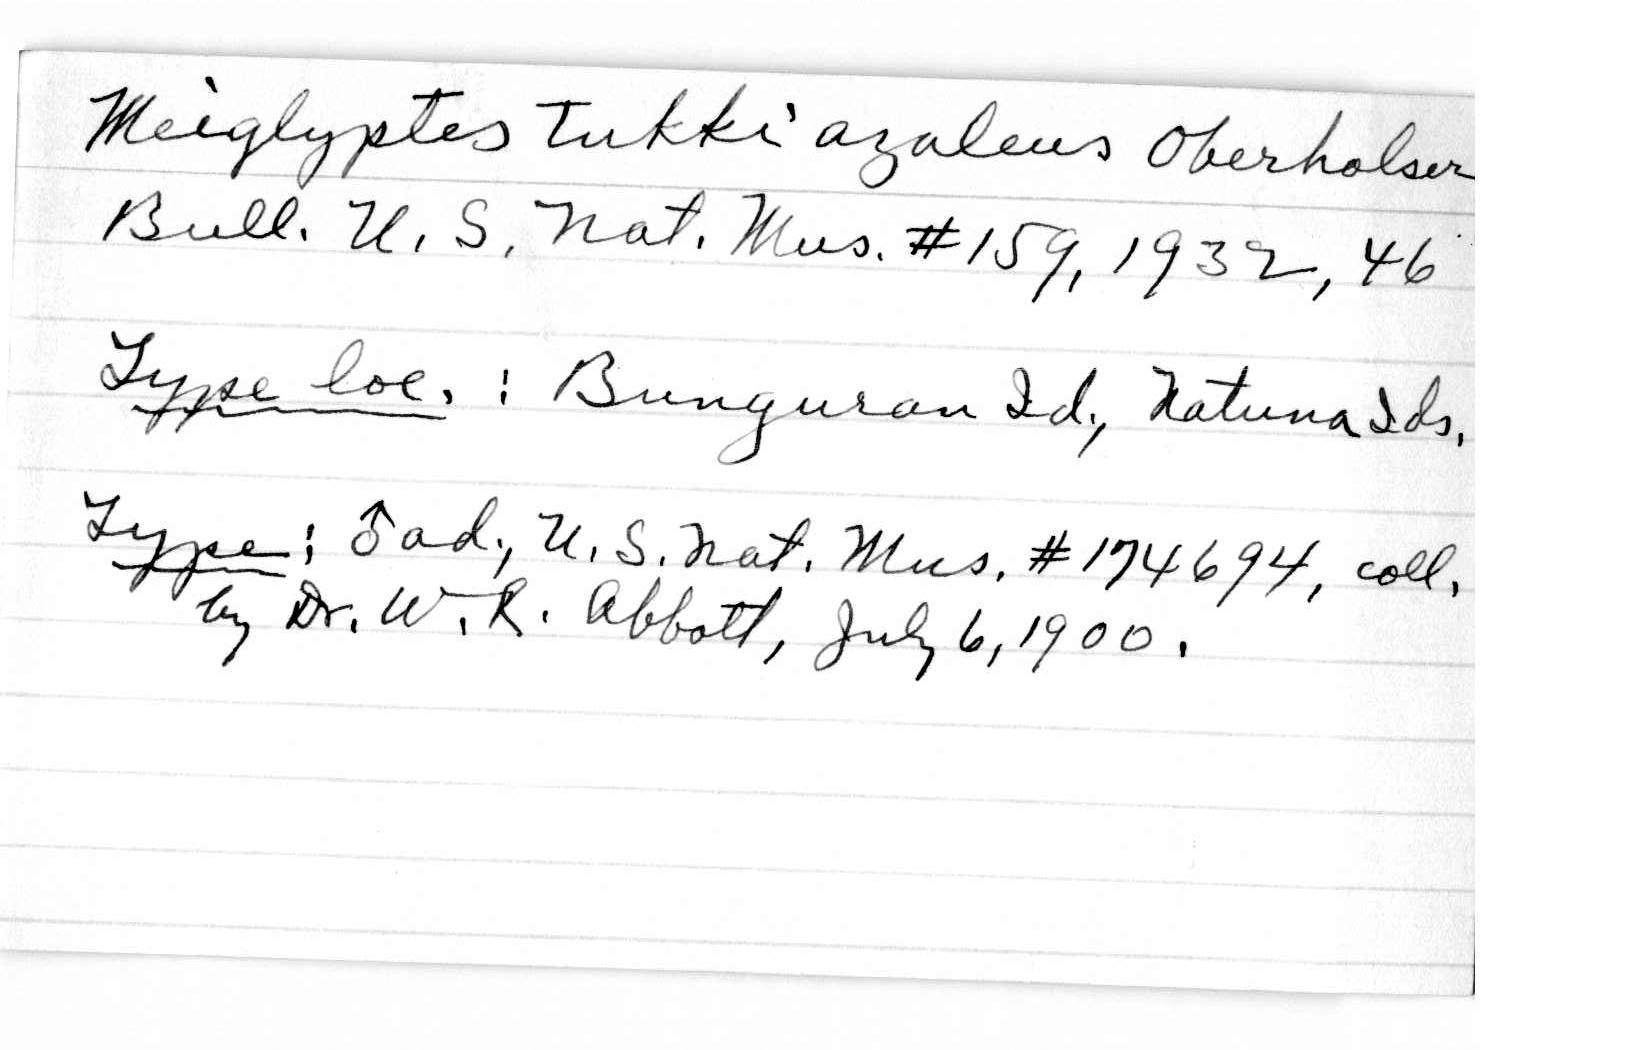 Meiglyptes tukki azaleus Oberholser
Bull. U. S. Nat. Mus. #159, 1932, 46
Type loc. : Bunguran Id., Natuna Ids.
Type : ♂ ad., U. S. Nat. Mus. #174694, coll.
by Dr. W. L. Abbott, July 6, 1900.